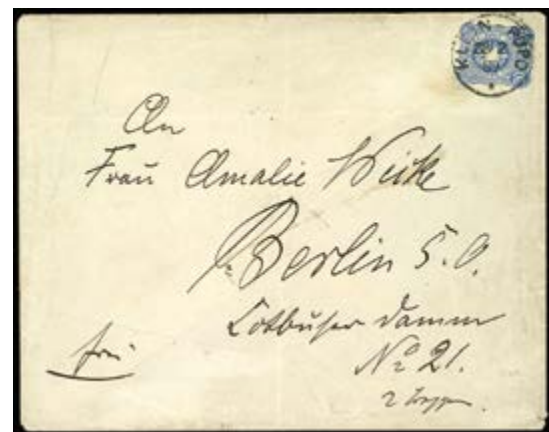 KLEIN-POPO
An
Frau Amalie Wicke
Berlin S.O.
Cottbuser Damm
frei
No 21.
2 Treppen.